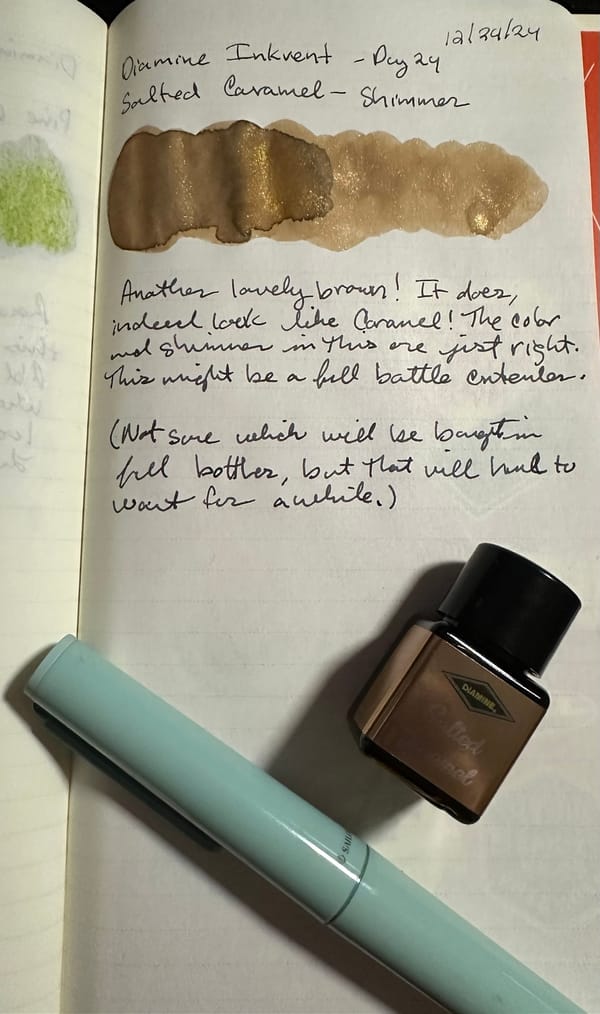 12/24/24
Diamine Inkvent - Day 24
Salted Caramel - Shimmer
Another lovely brown! It does,
indeed look like Caramel! The color
and shimmer in this are just right.
This might be a full bottle contender.
(Not sure which will be bought in
full bottles, but that will have to
wait for awhile.)
DIAMINE
Salted
Caramel